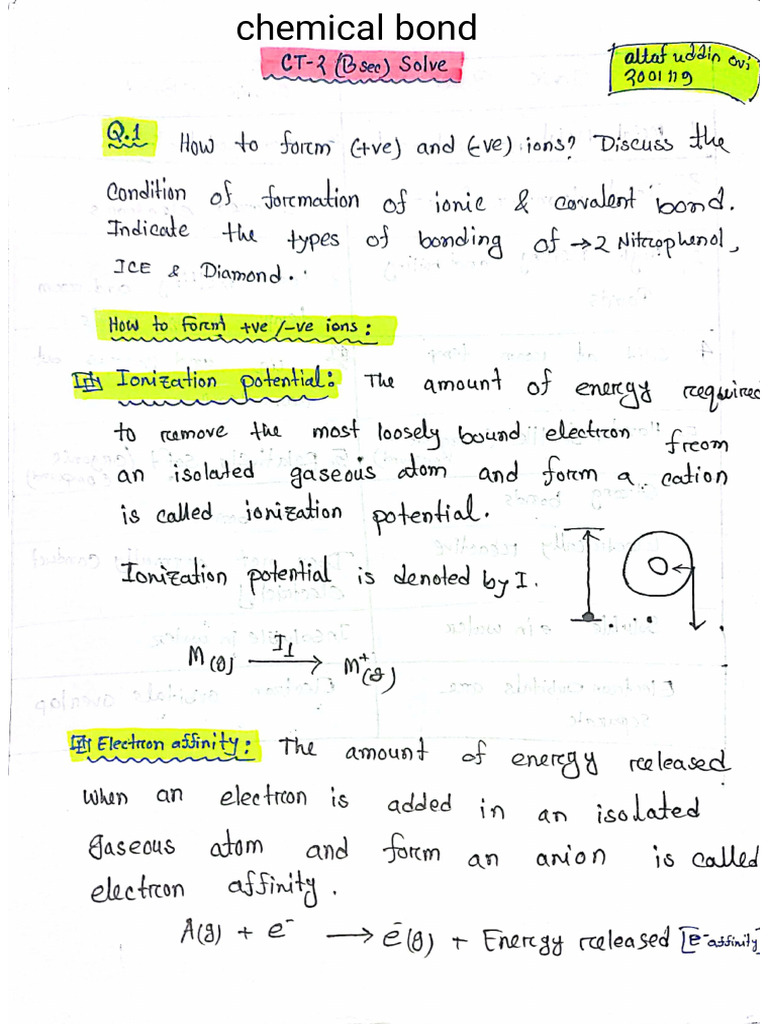 chemical bond
CT-2 (B sec) Solve
altaf uddin ovi
2001119
Q.1 How to form (+ve) and (-ve) ions? Discuss the
Condition of formation of ionic & covalent bond.
Indicate the types of bonding of → 2 Nitrophenol,
ICE & Diamond.
How to form +ve /-ve ions:
Ionization potential: The amount of energy required
to remove the most loosely bound electron from
an isolated gaseous atom and form a cation
is called ionization potential.
Ionization potential is denoted by I.
M(g) —I₁→ M⁺(g)
Electron affinity: The amount of energy released
when an electron is added in an isolated
gaseous atom and form an anion is called
electron affinity.
A(g) + e⁻ → e⁻(g) + Energy released [e⁻affinity]